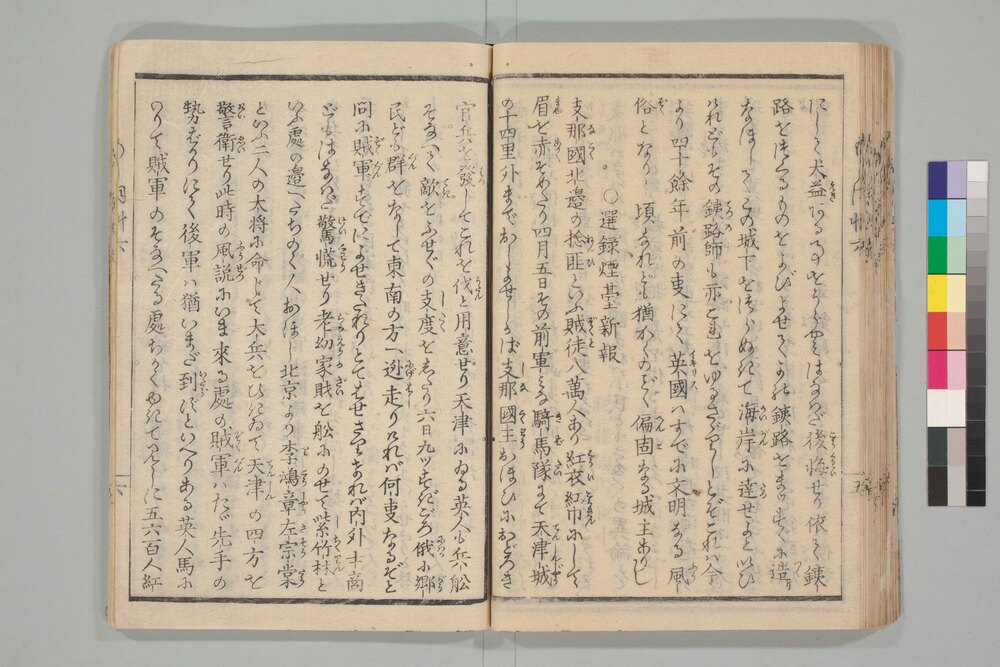 にして大益ある事をさとり
後悔せり依て銕
路をつくるものをよびよせて
銕路を
造り
この城下を
海岸に達せよといひ
けれどもその銕路師も亦これをゆるさゞりしとぞこれハ今
より四十餘年前の事にて英國ハすでに文明なる風
俗となり
頃なれども猶かくのごとく偏固なる城主ありし
○選録煙臺新報
支那國北邉の捻匪といふ賊徒八萬人あり紅衣紅巾にして
眉を赤くそめたり四月五日その前軍
騎馬隊にて天津城
の十四里外までおしよせしかば支那國王おほひにおどろき
官兵を發してこれを伐と用意せり天津にゐる英人も兵舩
そなへて敵をふせぐの支度を
六日九ツすぎごろ俄に郷
民ども群をなして東南の方へ迯走りければ何事なるぞと
問に賊軍すでによせきたれりとて
内外士商
ども
驚慌せり老幼家財を舩にのせて紫竹林と
いふ處の邉へたちのく人おほし北京より李鴻章左宗棠
といふ二人の大将に命じて大兵をひきゐて天津の四方を
警衛せり此時の風説にいま來る處の賊軍ハたゞ先手の
勢ばかりにて後軍ハ猶いまだ到ずといへりある英人馬に
のりて賊軍のそなへたる處ちかく
五六百人紅